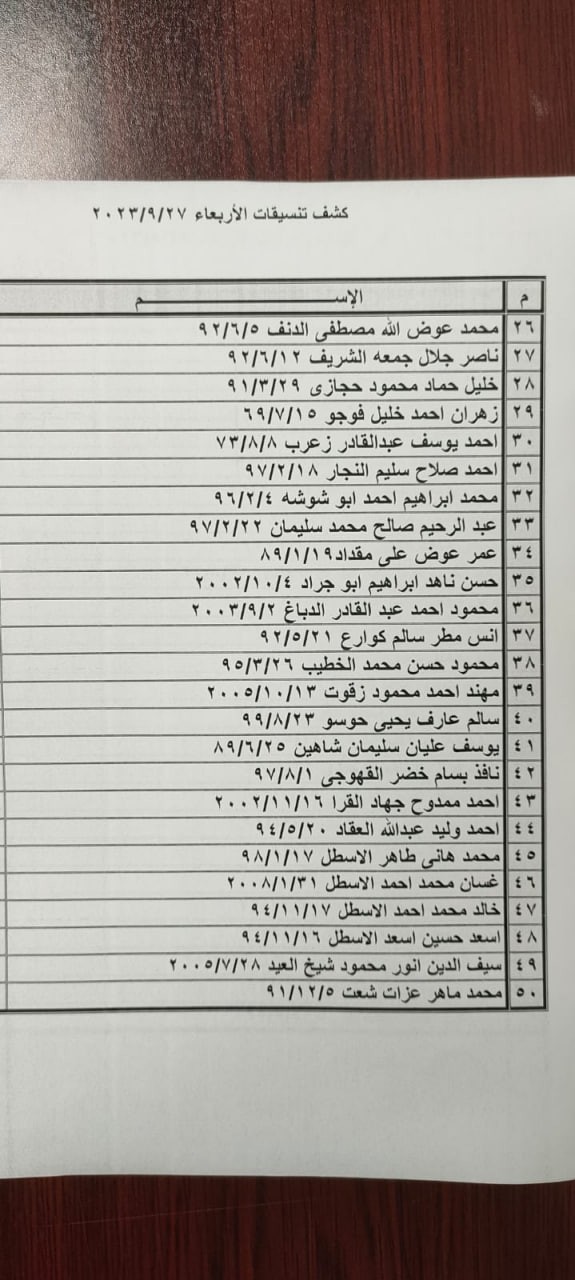 كشف تنسيقات الأربعاء ٢٠٢٣/٩/٢٧
م الإســـــــــــــم
٢٦ محمد عوض الله مصطفى الدنف ٩٢/٦/٥
٢٧ ناصر جلال جمعه الشريف ٩٢/٦/١٢
٢٨ خليل حماد محمود حجازى ٩١/٣/٢٩
٢٩ زهران احمد خليل فوجو ٦٩/٧/١٥
٣٠ احمد يوسف عبدالقادر زعرب ٧٣/٨/٨
٣١ احمد صلاح سليم النجار ٩٧/٢/١٨
٣٢ محمد ابراهيم احمد ابو شوشه ٩٦/٢/٤
٣٣ عبد الرحيم صالح محمد سليمان ٩٧/٢/٢٢
٣٤ عمر عوض على مقداد ٨٩/١/١٩
٣٥ حسن ناهد ابراهيم ابو جراد ٢٠٠٢/١٠/٤
٣٦ محمود احمد عبد القادر الدباغ ٢٠٠٣/٩/٢
٣٧ انس مطر سالم كوارع ٩٢/٥/٢١
٣٨ محمود حسن محمد الخطيب ٩٥/٣/٢٦
٣٩ مهند احمد محمود زقوت ٢٠٠٥/١٠/١٣
٤٠ سالم عارف يحيى حوسو ٩٩/٨/٢٣
٤١ يوسف عليان سليمان شاهين ٨٩/٦/٢٥
٤٢ نافذ بسام خضر القهوجى ٩٧/٨/١
٤٣ احمد ممدوح جهاد القرا ٢٠٠٢/١١/١٦
٤٤ احمد وليد عبدالله العقاد ٩٤/٥/٢٠
٤٥ محمد هانى طاهر الاسطل ٩٨/١/١٧
٤٦ غسان محمد احمد الاسطل ٢٠٠٨/١/٣١
٤٧ خالد محمد احمد الاسطل ٩٤/١١/١٧
٤٨ اسعد حسين اسعد الاسطل ٩٤/١١/١٦
٤٩ سيف الدين انور محمود شيخ العيد ٢٠٠٥/٧/٢٨
٥٠ محمد ماهر عزات شعت ٩١/١٢/٥